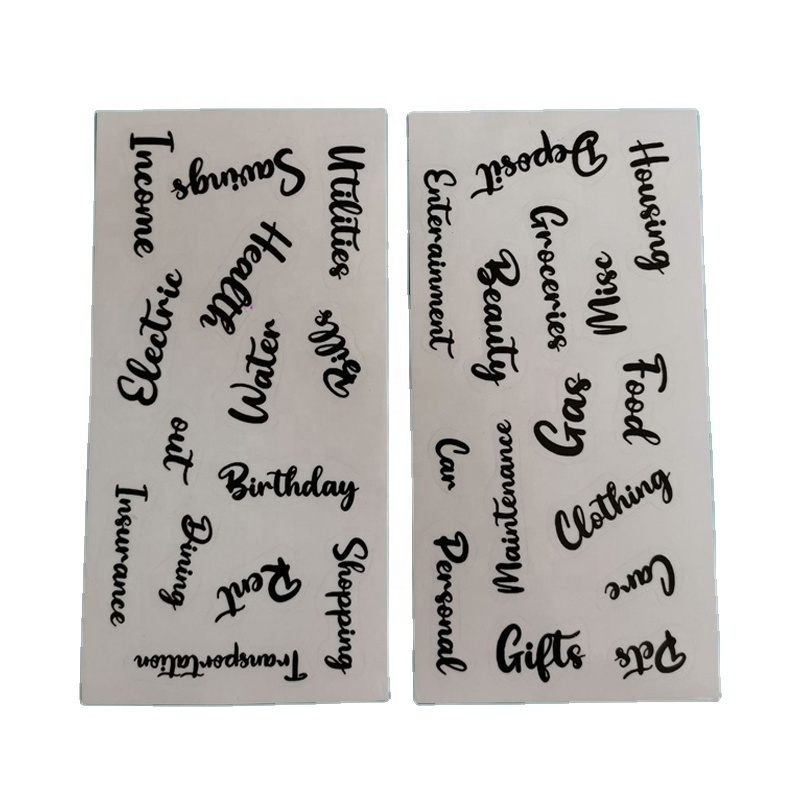 Income
Savings
Utilities
Health
Electric
Water
Bills
out
Birthday
Insurance
Dining
Rent
Shopping
Transportation
Deposit
Housing
Enterainment
Groceries
Misc
Beauty
Food
Gas
Car
Maintenance
Clothing
Personal
Care
Gifts
Pets